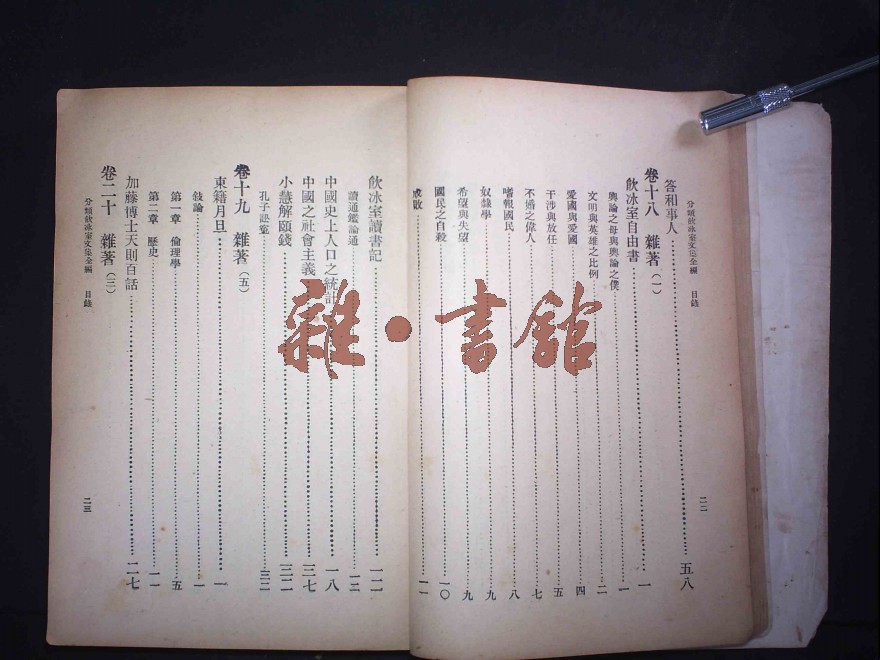 分類飲冰室文集全編　目錄
二二
答和事人……五八
卷十八　雜著（一）
飲冰室自由書……一
輿論之母與輿論之僕……一
文明與英雄之比例……二
愛國與愛國……四
干涉與放任……五
不婚之偉人……七
嗜報國民……八
奴隸學……九
希望與失望……九
國民之自殺……一〇
成敗……一一
飲冰室讀書記……一二
讀通鑑論通……一二
中國史上人口之統計……一八
中國之社會主義……三七
小慧解頤錢……三二
孔子訟寃……三二
卷十九　雜著（五）
東籍月旦……一
敍論……一
第一章　倫理學……五
第二章　歷史……一一
加藤博士天則百話……二七
卷二十　雜著（三）
分類飲冰室文集全編　目錄
二三
雜·書館